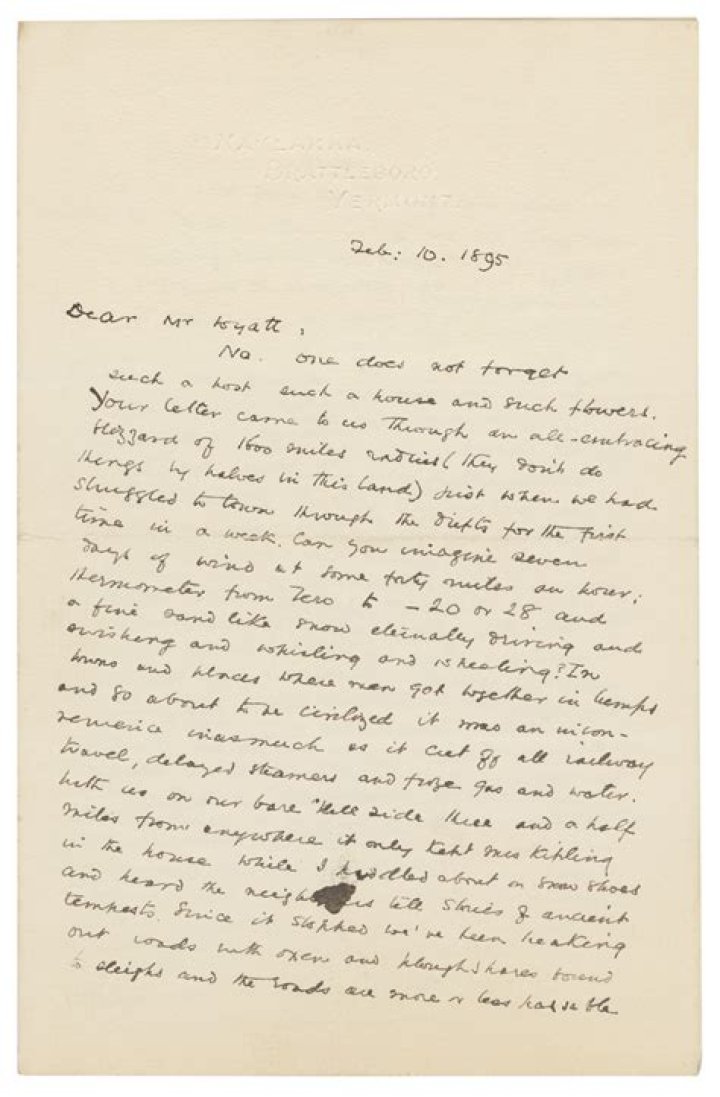 NAULAKHA,
BRATTLEBORO,
VERMONT.
Feb: 10. 1895
Dear Mr Wyatt,
No. one does not forget
such a host such a house and such flowers.
Your letter came to us through an all-embracing
blizzard of 1600 miles radius (they don't do
things by halves in this land) just when we had
struggled to town through the drifts for the first
time in a week. Can you imagine seven
days of wind at some forty miles an hour;
thermometer from Zero to -20 or 28 and
a fine sand like snow eternally driving and
swishing and whistling and wheeling? In
towns and places where men got together in lumps
and so about to be civilized it was an incon-
venience inasmuch as it cut off all railway
travel, delayed steamers and froze gas and water.
With us on our bare hill side three and a half
miles from anywhere it only kept Mrs Kipling
in the house while I huddled about on snow shoes
and heard the neighbours tell stories of ancient
tempests. Since it stopped we've been breaking
out roads with oxen and ploughshares bound
to sleighs and the roads are more or less passable